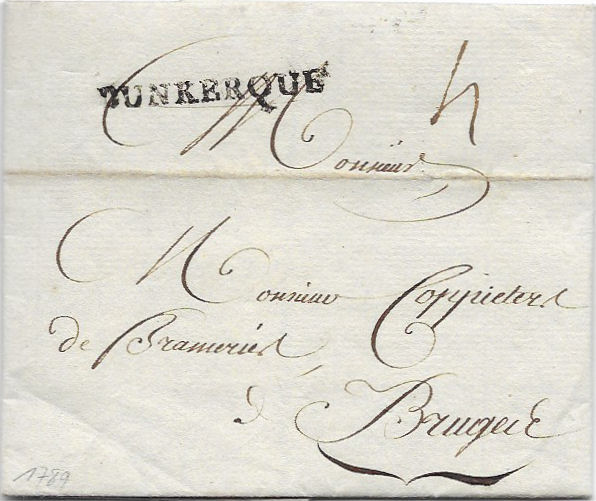 DUNKERQUE
4
Monsieur
Monsieur Coppieters
de Brameries
à Bruges
1789